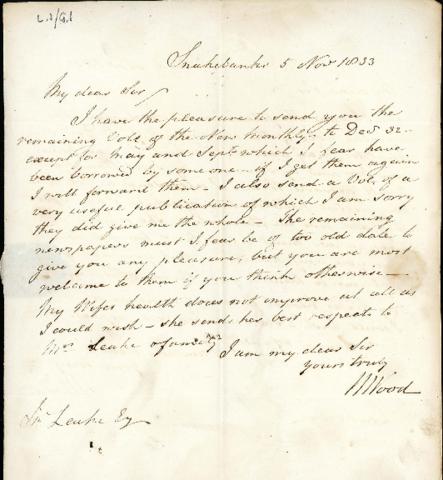 L.1/G.1
Snakebanks 5 Nov 1833
My dear Sir
I have the pleasure to send you the
remaining Vols. of the New Monthly to Dec 32 -
except for May and Sept. which I fear have
been borrowed by some one - if I get them again
I will forward them - I also send a Vol. of a
very useful publication of which I am sorry
they did give me the whole - The remaining
newspapers must I fear be of too old date to
give you any pleasure, but you are most
welcome to them if you think otherwise -
My Wifes health does not improve at all as
I could wish - she sends her best respects to
Mrs Leake
I am my dear Sir
Yours truly
Wood
Leake Esq